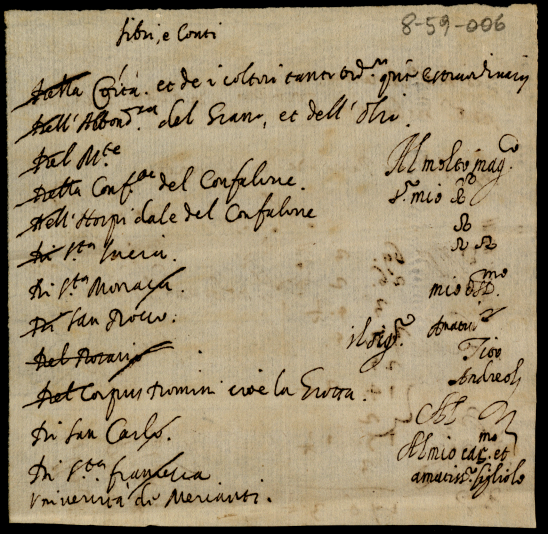 8-59-006
libri, e Conti
Della Città. et de i coltori tant' ord.rii quãt' estraordinarij
Dell'Abbond.za del Grano, et dell'Olio.
Del M.te
Della Conf.ne del Confalone.
Dell'Hospidale del Confalone
Di S.ta Lucia.
Di S.ta Monaca.
Di San Rocco.
Del Rosario
Del Corpus Domini cioè la Grotta.
Di San Carlo.
Di S.ta francesca
Università di Mercanti.
Al molto mag.co
S.r mio
mio
il sig.r
Andreoli
Al
Al mio car.mo et
amatiss.o figliolo